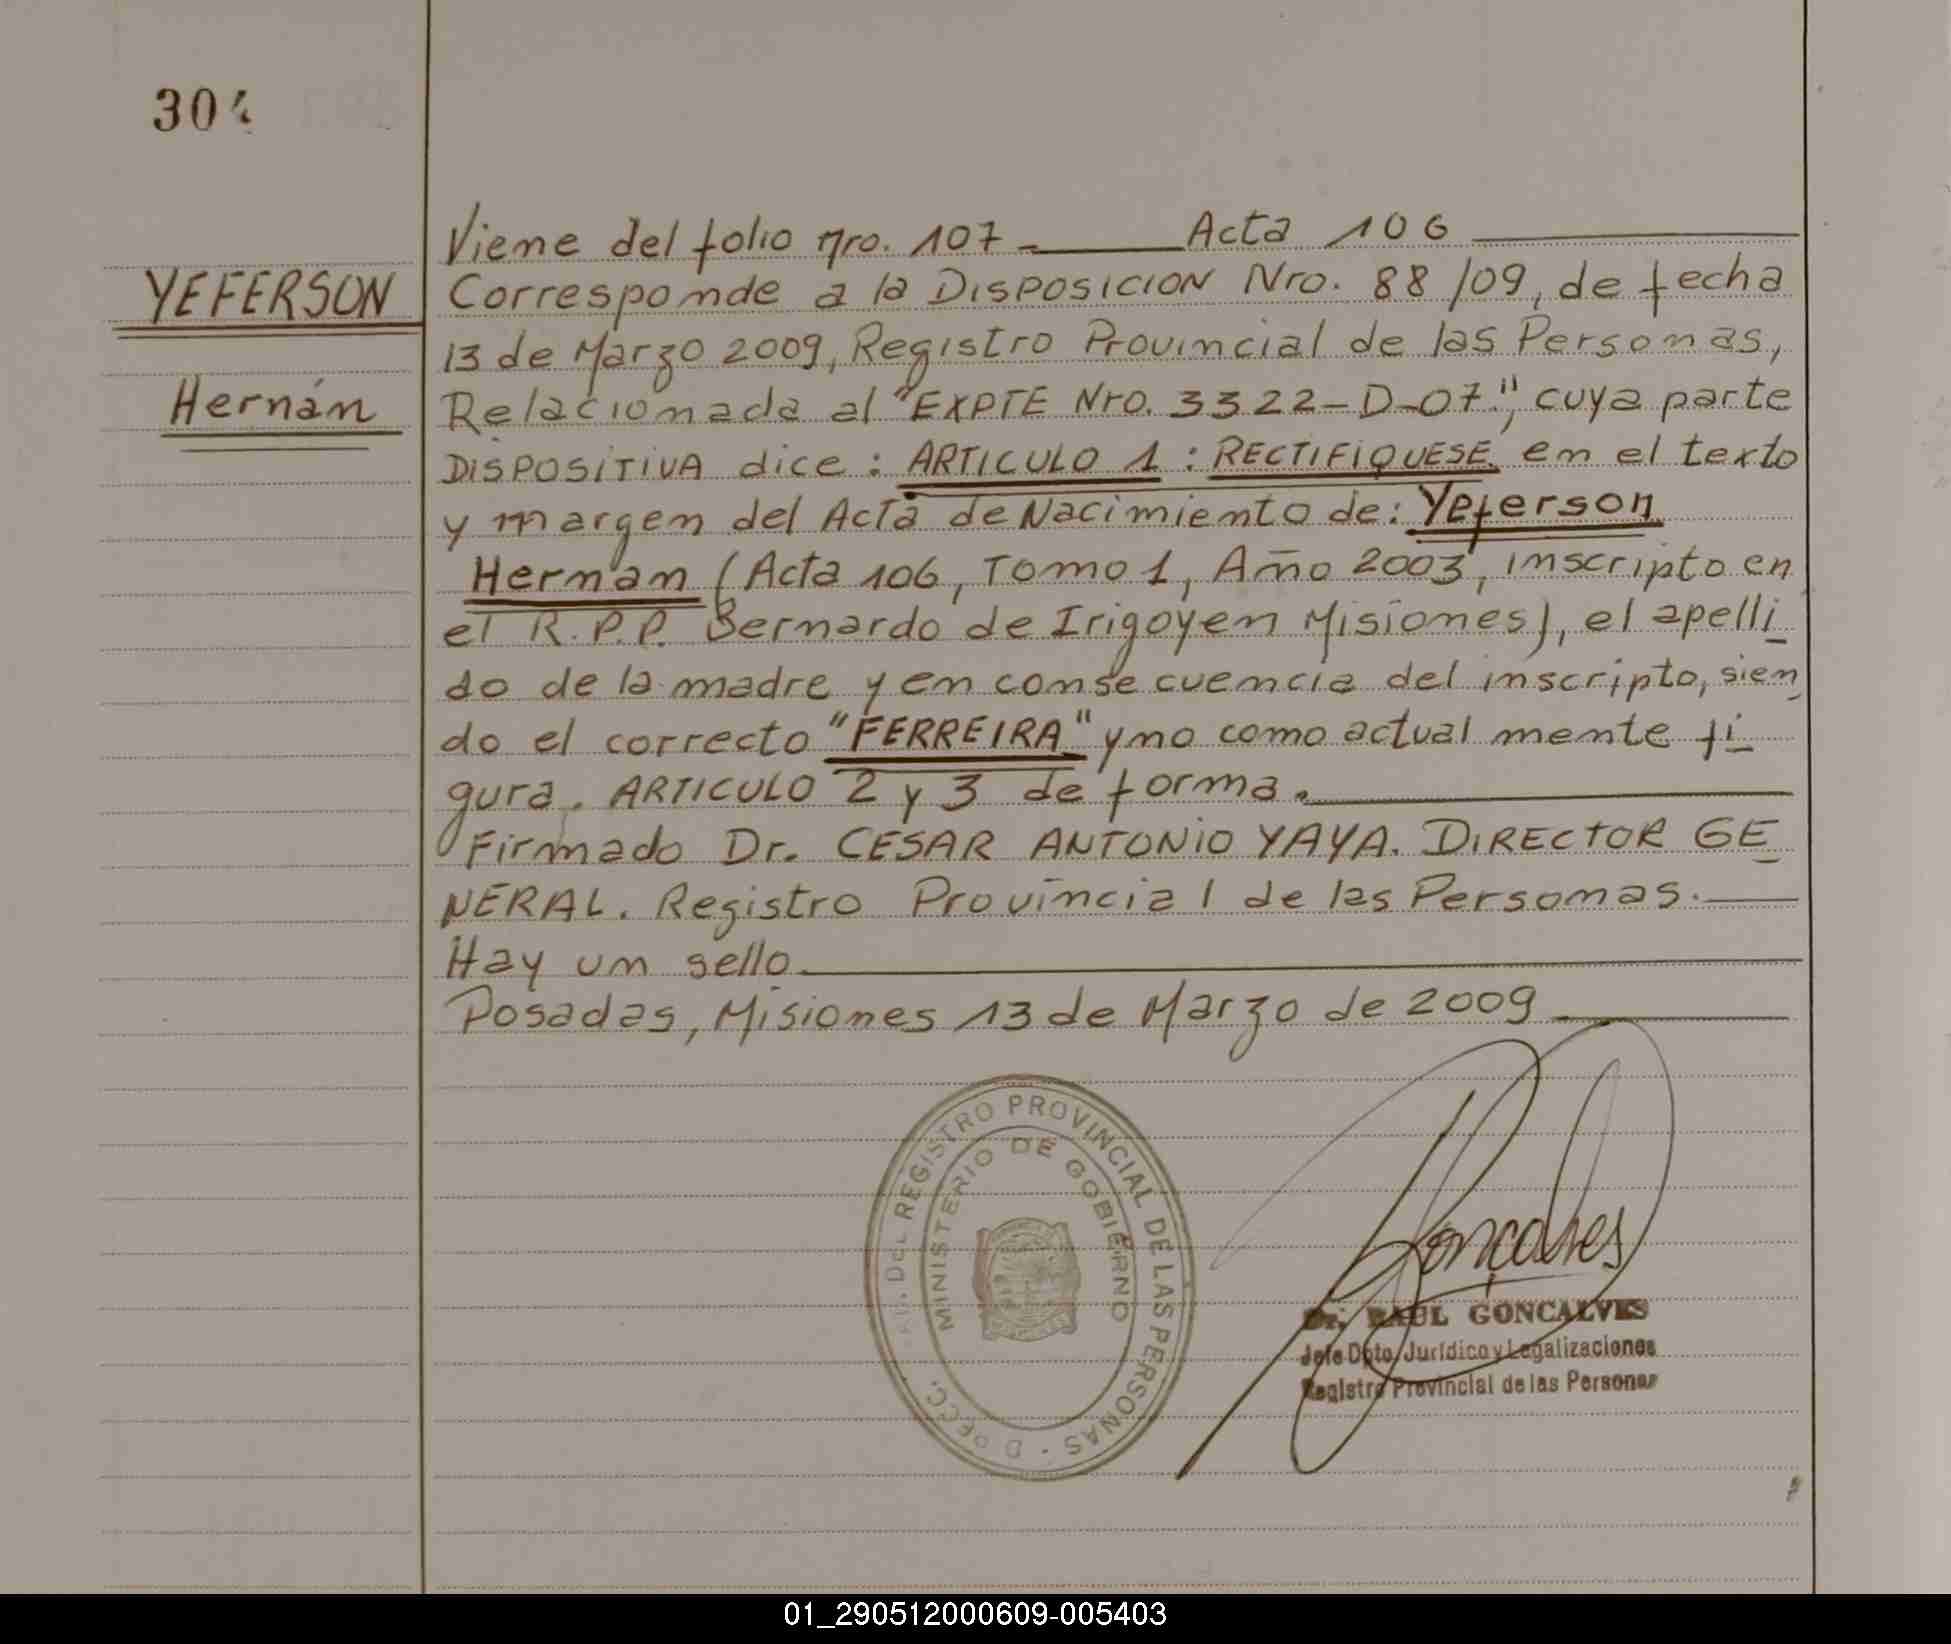 304
YEFERSON
Hernán
Viene del folio nro. 107 - Acta 106
Corresponde a la DISPOSICION Nro. 88/09, de fecha
13 de Marzo 2009, Registro Provincial de las Personas,
Relacionada al "EXPTE Nro. 3322-D-07.", cuya parte
DISPOSITIVA dice: ARTICULO 1: RECTIFIQUESE, en el texto
y margen del Acta de Nacimiento de: Yeferson
Hernan (Acta 106, Tomo 1, Año 2003, inscripto en
el R.P.P. Bernardo de Irigoyen Misiones), el apelli
do de la madre y en consecuencia del inscripto, sien
do el correcto "FERREIRA" y no como actual mente fi
gura. ARTICULO 2 y 3 de forma.
Firmado Dr. CESAR ANTONIO YAYA. DIRECTOR GE
NERAL. Registro Provincial de las Personas.
Hay un sello
Posadas, Misiones 13 de Marzo de 2009
DEL REGISTRO PROVINCIAL DE LAS PERSONAS
MINISTERIO DE GOBIERNO
Goncalves
Dr. RAUL GONCALVES
Jefe Dpto. Jurídico y Legalizaciones
Registro Provincial de las Personas
01_290512000609-005403